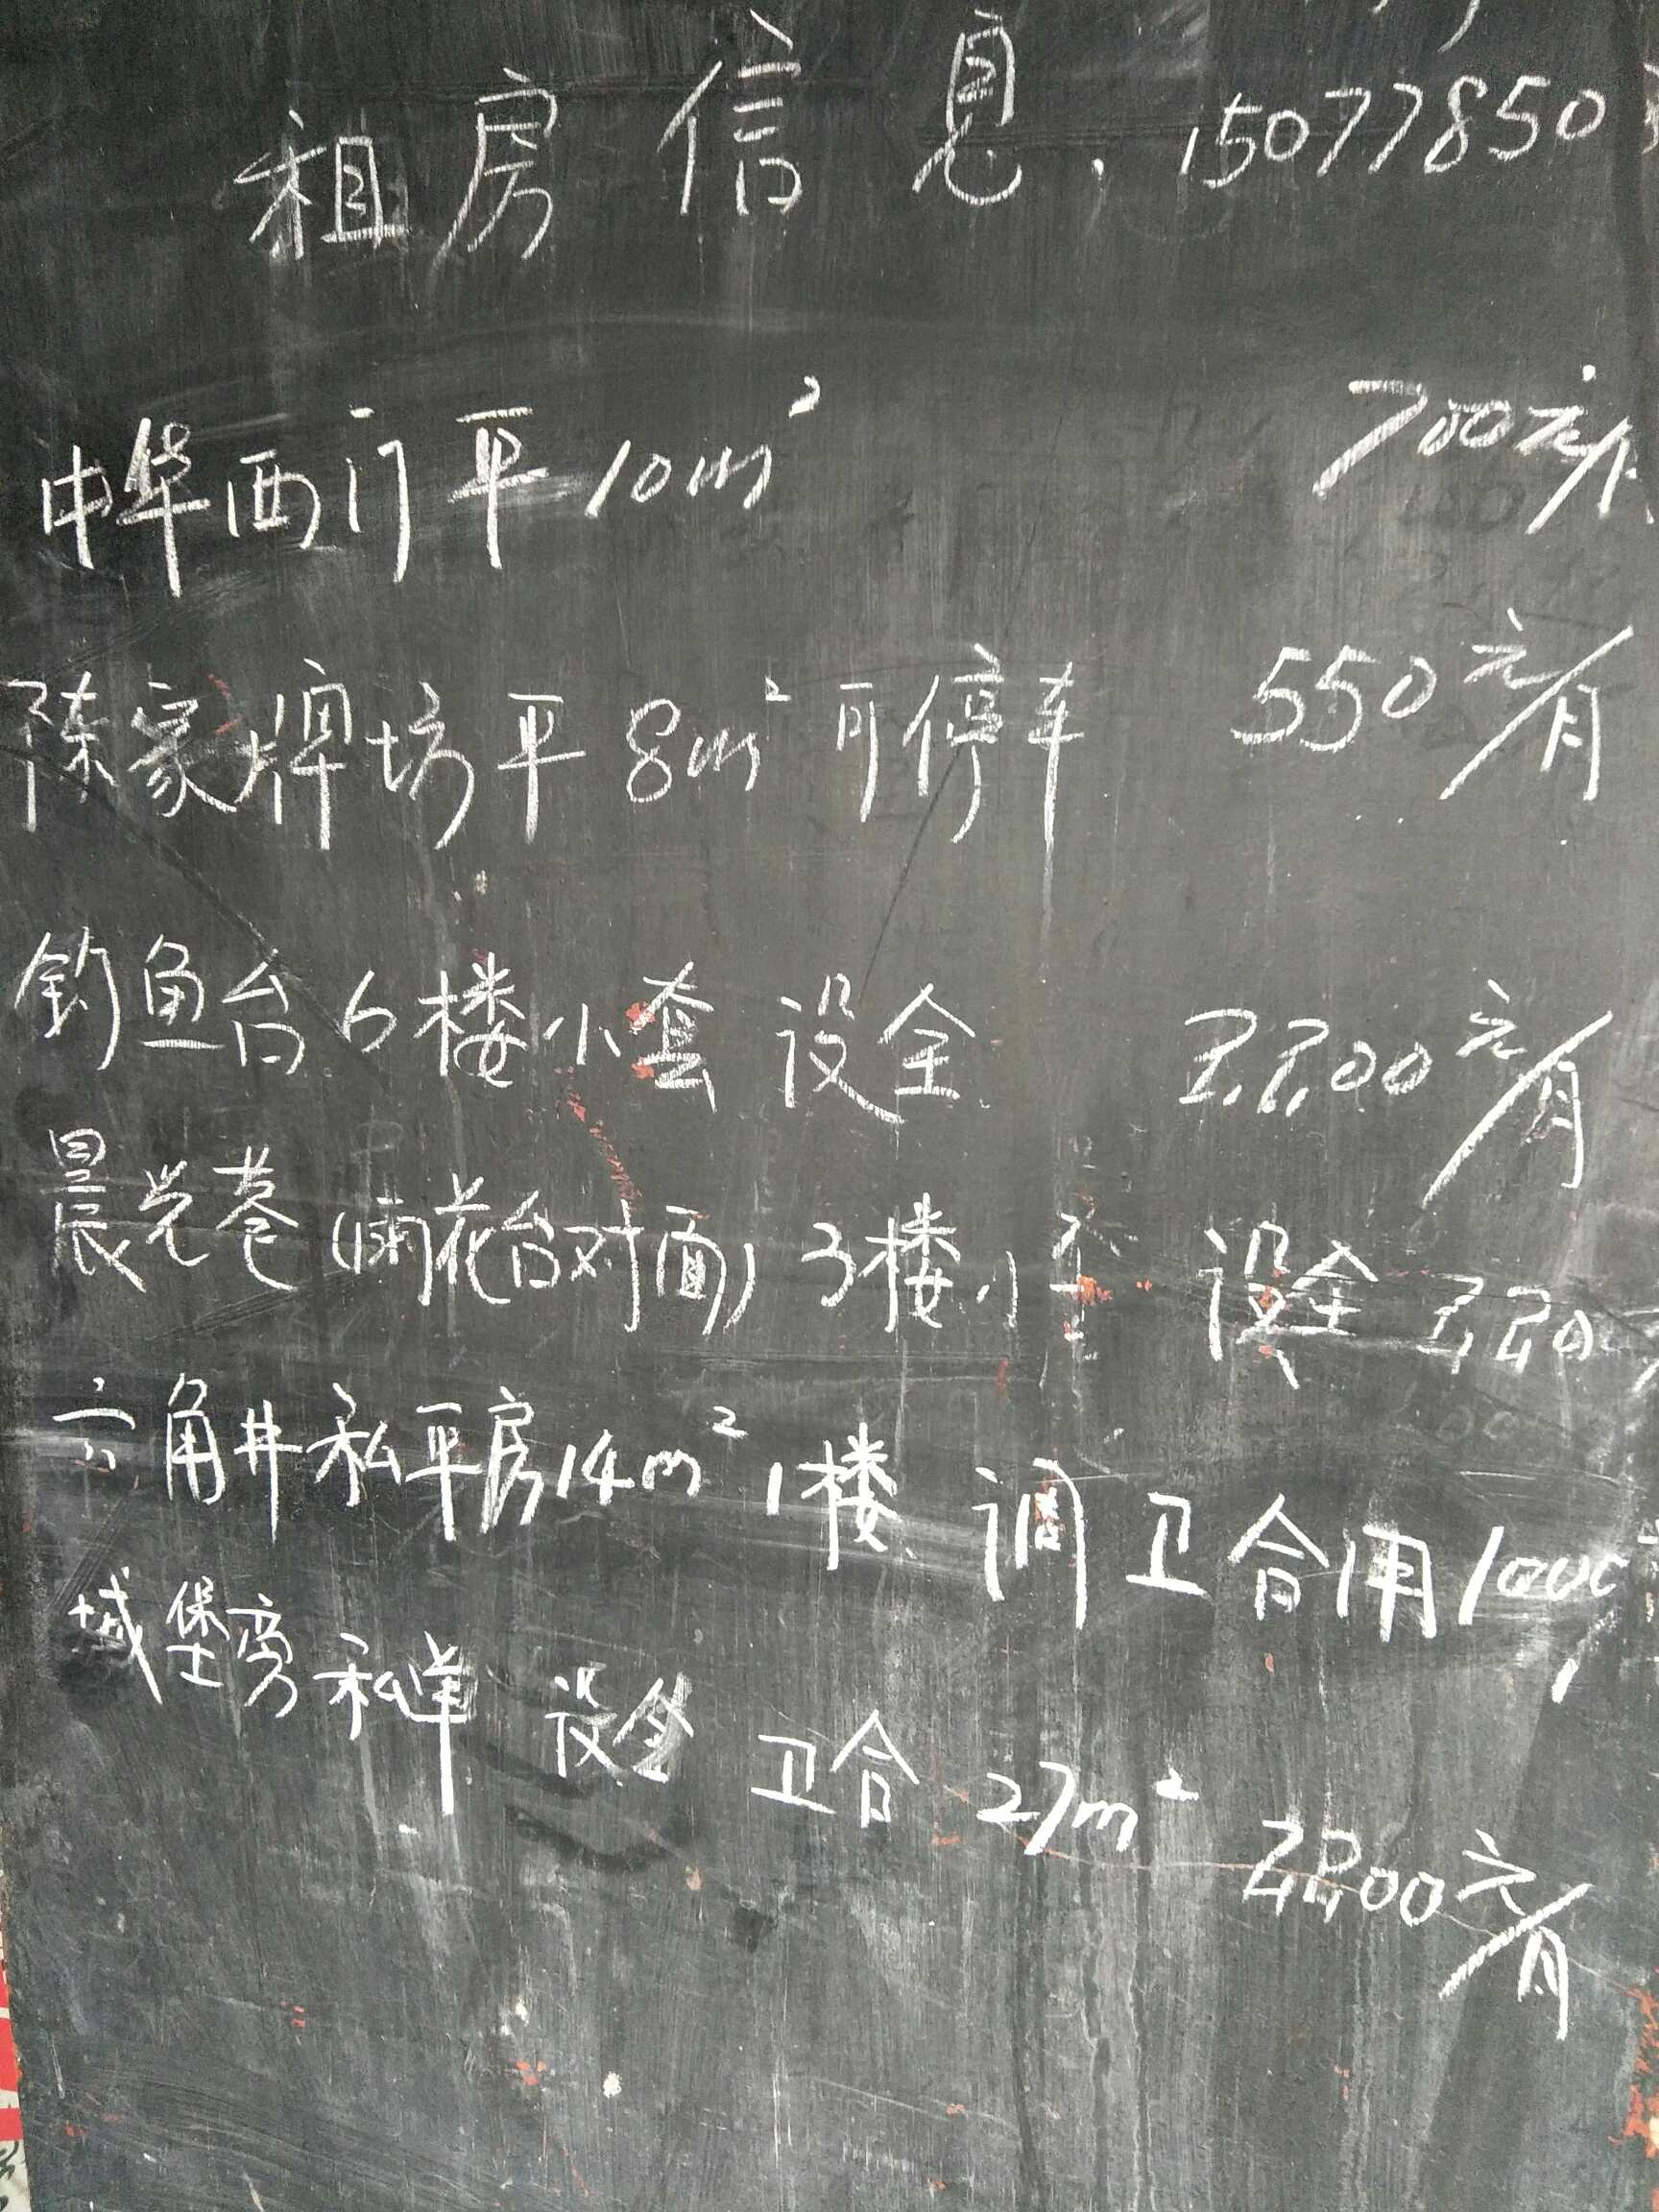 租房信息. 15077850
中华西门平10m² 700元/月
陈家牌坊平8m²可停车 550元/月
钓鱼台6楼小套 设全 2200元/月
晨光巷(雨花台对面)3楼小套 设全 220
六角井私平房14m² 1楼 调 卫合用1000
城堡旁私单 设全 卫合 27m² 2200元/月